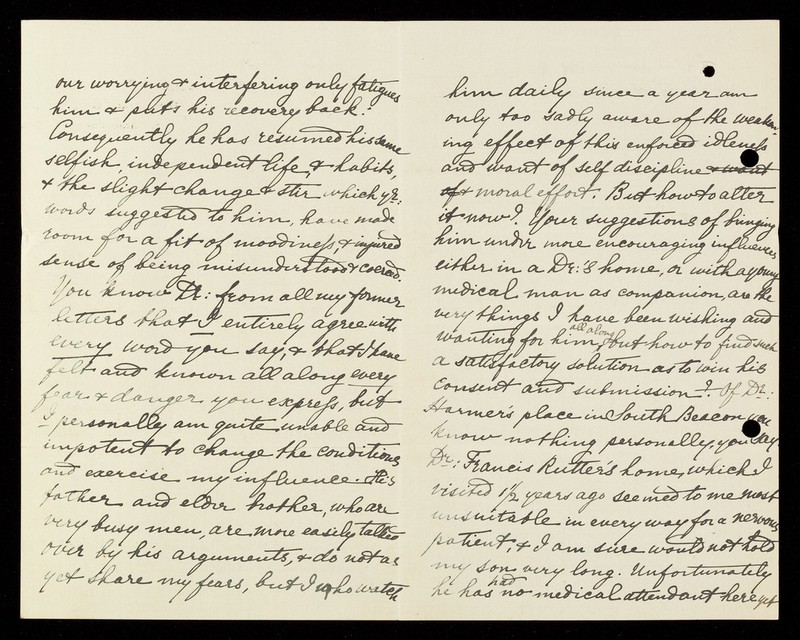 our worrying & interfering only fatigues
him & puts his recovery back.
Consequently he has resumed his same
selfish, independent life & habits,
& the slight change & stir which yr:
words suggested to him, have made
room for a fit of moodiness & injured
sense of being misunderstood & coerced.
You know Dr: from all my former
letters that I entirely agree with
every word you say, & that I have
felt and known all along every
fear & danger you express, but
I personally am quite unable and
impotent to change the conditions
and exercise my influence. His
father and elder brother, who are
very busy men, are more easily talked
over by his arguments, & do not as
yet share my fears, but I who watch
him daily since a year am
only too sadly aware of the weaken-
ing effect of this enforced idleness
and want of self discipline & want
of & moral effort. But how to alter
it now? Your suggestions of bringing
him under more encouraging influences
either in a Dr:'s home, or with a young
medical man as companion, are the
very things I have been wishing and
wanting for him, all along, but how to find such
a satisfactory solution as to win his
consent and submission? Of Dr:
Harmer's place in South Beacon you
know nothing personally, you say.
Dr: Francis Rutter's home, which I
visited 1½ years ago seemed to me most
unsuitable in every way for a nervous
patient, & I am sure would not hold
my son very long. Unfortunately
he has had no medical attendant here yet